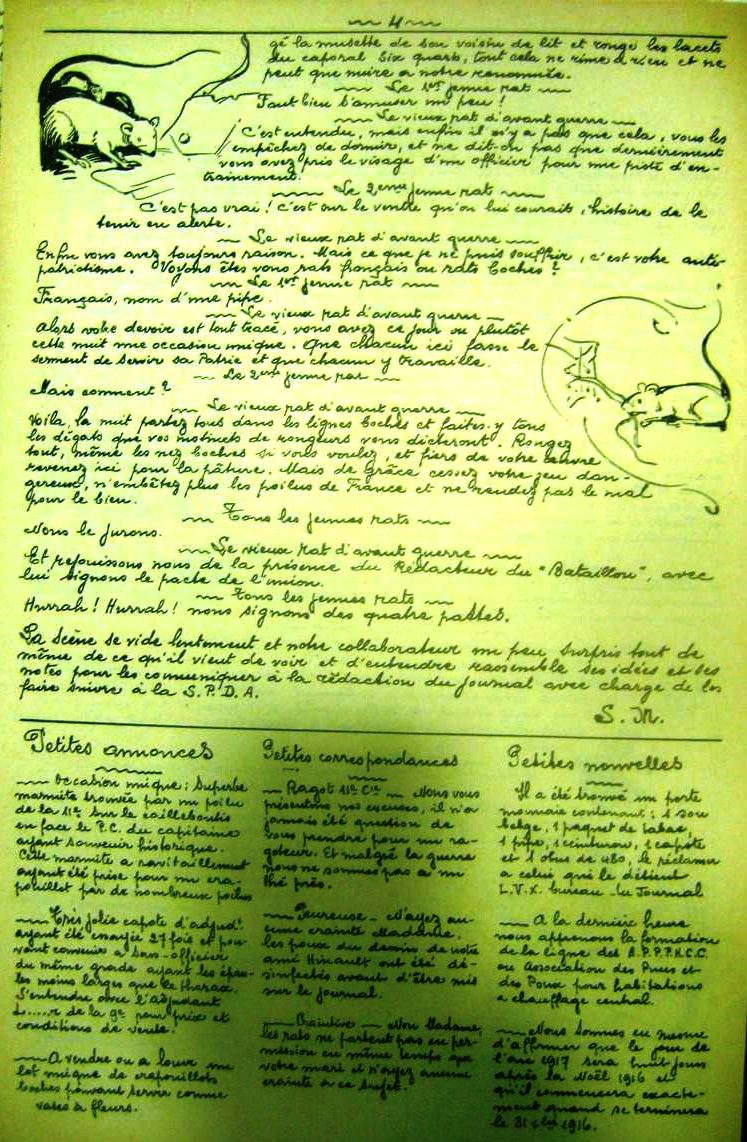 4
gé la musette de son voisin de lit et rongé les lacets
du caporal Six quarts, tout cela ne rime à rien et ne
peut que nuire à notre renommée.
Le 1er jeune rat
Faut bien s'amuser un peu !
Le vieux rat d'avant guerre
C'est entendu, mais enfin il n'y a pas que cela, vous les
empêchez de dormir, et ne dit-on pas que dernièrement
vous avez pris le visage d'un officier pour une piste d'en-
traînement.
Le 2eme jeune rat
C'est pas vrai ! c'est sur le ventre qu'on lui courait, histoire de le
tenir en alerte.
Le vieux rat d'avant guerre
Enfin vous avez toujours raison. Mais ce que je ne puis souffrir, c'est votre anti-
patriotisme. Voyons êtes vous rats français ou rats boches ?
Le 1er jeune rat
Français, nom d'une pipe.
Le vieux rat d'avant guerre
Alors votre devoir est tout tracé, vous avez ce jour ou plutôt
cette nuit une occasion unique. Que chacun ici fasse le
serment de servir sa Patrie et que chacun y travaille.
Le 2eme jeune rat
Mais comment ?
Le vieux rat d'avant guerre
Voilà, la nuit partez tous dans les lignes boches et faites-y tous
les dégâts que vos instincts de rongeurs vous dicteront. Rongez
tout, même les nez boches si vous voulez, et fiers de votre œuvre
revenez ici pour la pâture. Mais de grâce cessez votre jeu dan-
gereux, n'embêtez plus les poilus de France et ne rendez pas le mal
pour le bien.
Tous les jeunes rats
Nous le jurons.
Le vieux rat d'avant guerre
Et réjouissons nous de la présence du Rédacteur du "Bataillou", avec
lui signons le pacte de l'union.
Tous les jeunes rats
Hurrah ! Hurrah ! nous signons des quatre pattes.
La Scène se vide lentement et notre collaborateur un peu surpris tout de
même de ce qu'il vient de voir et d'entendre rassemble ses idées et ses
notes pour les comuniquer à la rédaction du Journal avec charge de les
faire suivre à la S.P.D.A.
S. M.
Petites annonces
Occasion unique : Superbe
marmite trouvée par un poilu
de la 11e sur le cailleboutis
en face le P.C. du capitaine
ayant souvenir historique.
Cette marmite a ravitaillement
ayant été prise pour un cra-
pouillot par de nombreux poilus
Très jolie capote d'adjudt
ayant été essayée 27 fois et pou-
vant convenir à sous-officier
du même grade ayant les épau-
les moins larges que le thorax.
S'entendre avec l'adjudant
L.....r de la 9e pour prix et
conditions de vente.
A vendre ou à louer un
lot unique de crapouillots
boches pouvant servir comme
vases à fleurs.
Petites correspondances
Ragot 11e Cie — Nous vous
présentons nos excuses, il n'a
jamais été question de
vous prendre pour un ra-
goteur. Et malgré la guerre
nous ne sommes pas à un
thé près.
Peureuse — N'ayez au-
cune crainte Madame,
les poux du dessin de notre
ami Hinault ont été dé-
sinfectés avant d'être mis
sur le journal.
Craintive — Non Madame,
les rats ne partent pas en per-
mission en même temps que
votre mari et n'ayez aucune
crainte à ce sujet.
Petites nouvelles
Il a été trouvé un porte
monnaie contenant : 1 sou
belge, 1 paquet de tabac,
1 pipe, 1 ceinturon, 1 capote
et 1 obus de 480, le réclamer
a celui qui le détient
L.V.X. bureau du Journal
A la dernière heure
nous apprenons la formation
de la ligne des A.P.P.P.H.C.C.
ou Association des Puces et
des Poux pour habitations
a chauffage central.
Nous sommes en mesure
d'affirmer que le jour de
l'an 1917 sera huit jours
après la Noël 1916 et
qu'il commencera exacte-
ment quand se terminera
le 31 xbre 1916.